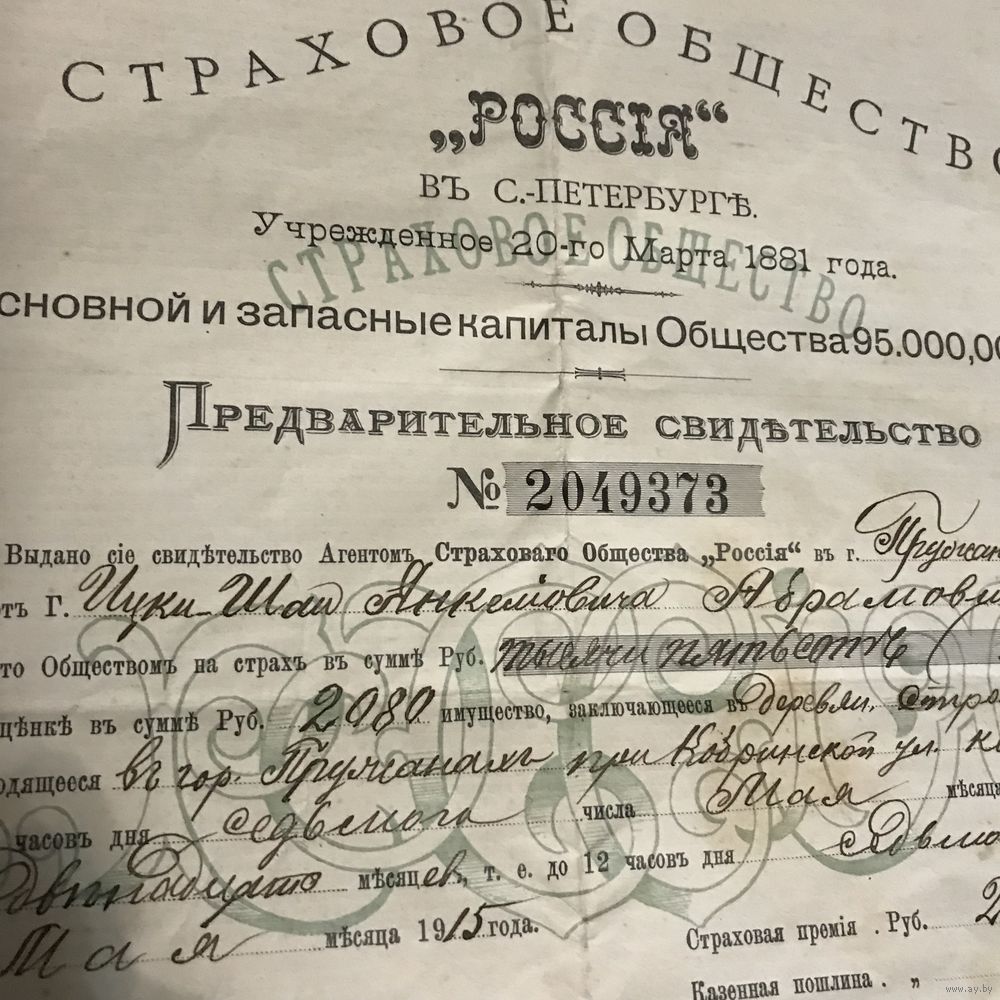 СТРАХОВОЕ ОБЩЕСТВО
„РОССІЯ“
ВЪ С.-ПЕТЕРБУРГѢ.
Учрежденное 20-го Марта 1881 года.
СТРАХОВОЕ ОБЩЕСТВО
сновной и запасные капиталы Общества 95.000,00
Предварительное свидѣтельство
№ 2049373
Выдано сіе свидѣтельство Агентомъ Страховаго Общества „Россія“ въ г. Пружан
тъ Г. Ицки-Шаи Янкелёвича Абрамови
то Обществомъ на страхъ въ суммѣ Руб. тысячи пятьсотъ (
цѣнкѣ въ суммѣ Руб. 2980 имущество, заключающееся въ деревян. стро
одящееся въ гор. Пружанахъ при Кобринской ул.
часовъ дня седьмого числа Мая мѣсяца
двѣнадцать мѣсяцевъ, т. е. до 12 часовъ дня седьмо
Мая мѣсяца 1915 года.
Страховая премія . Руб. 2
Казенная пошлина . „
www.ay.by